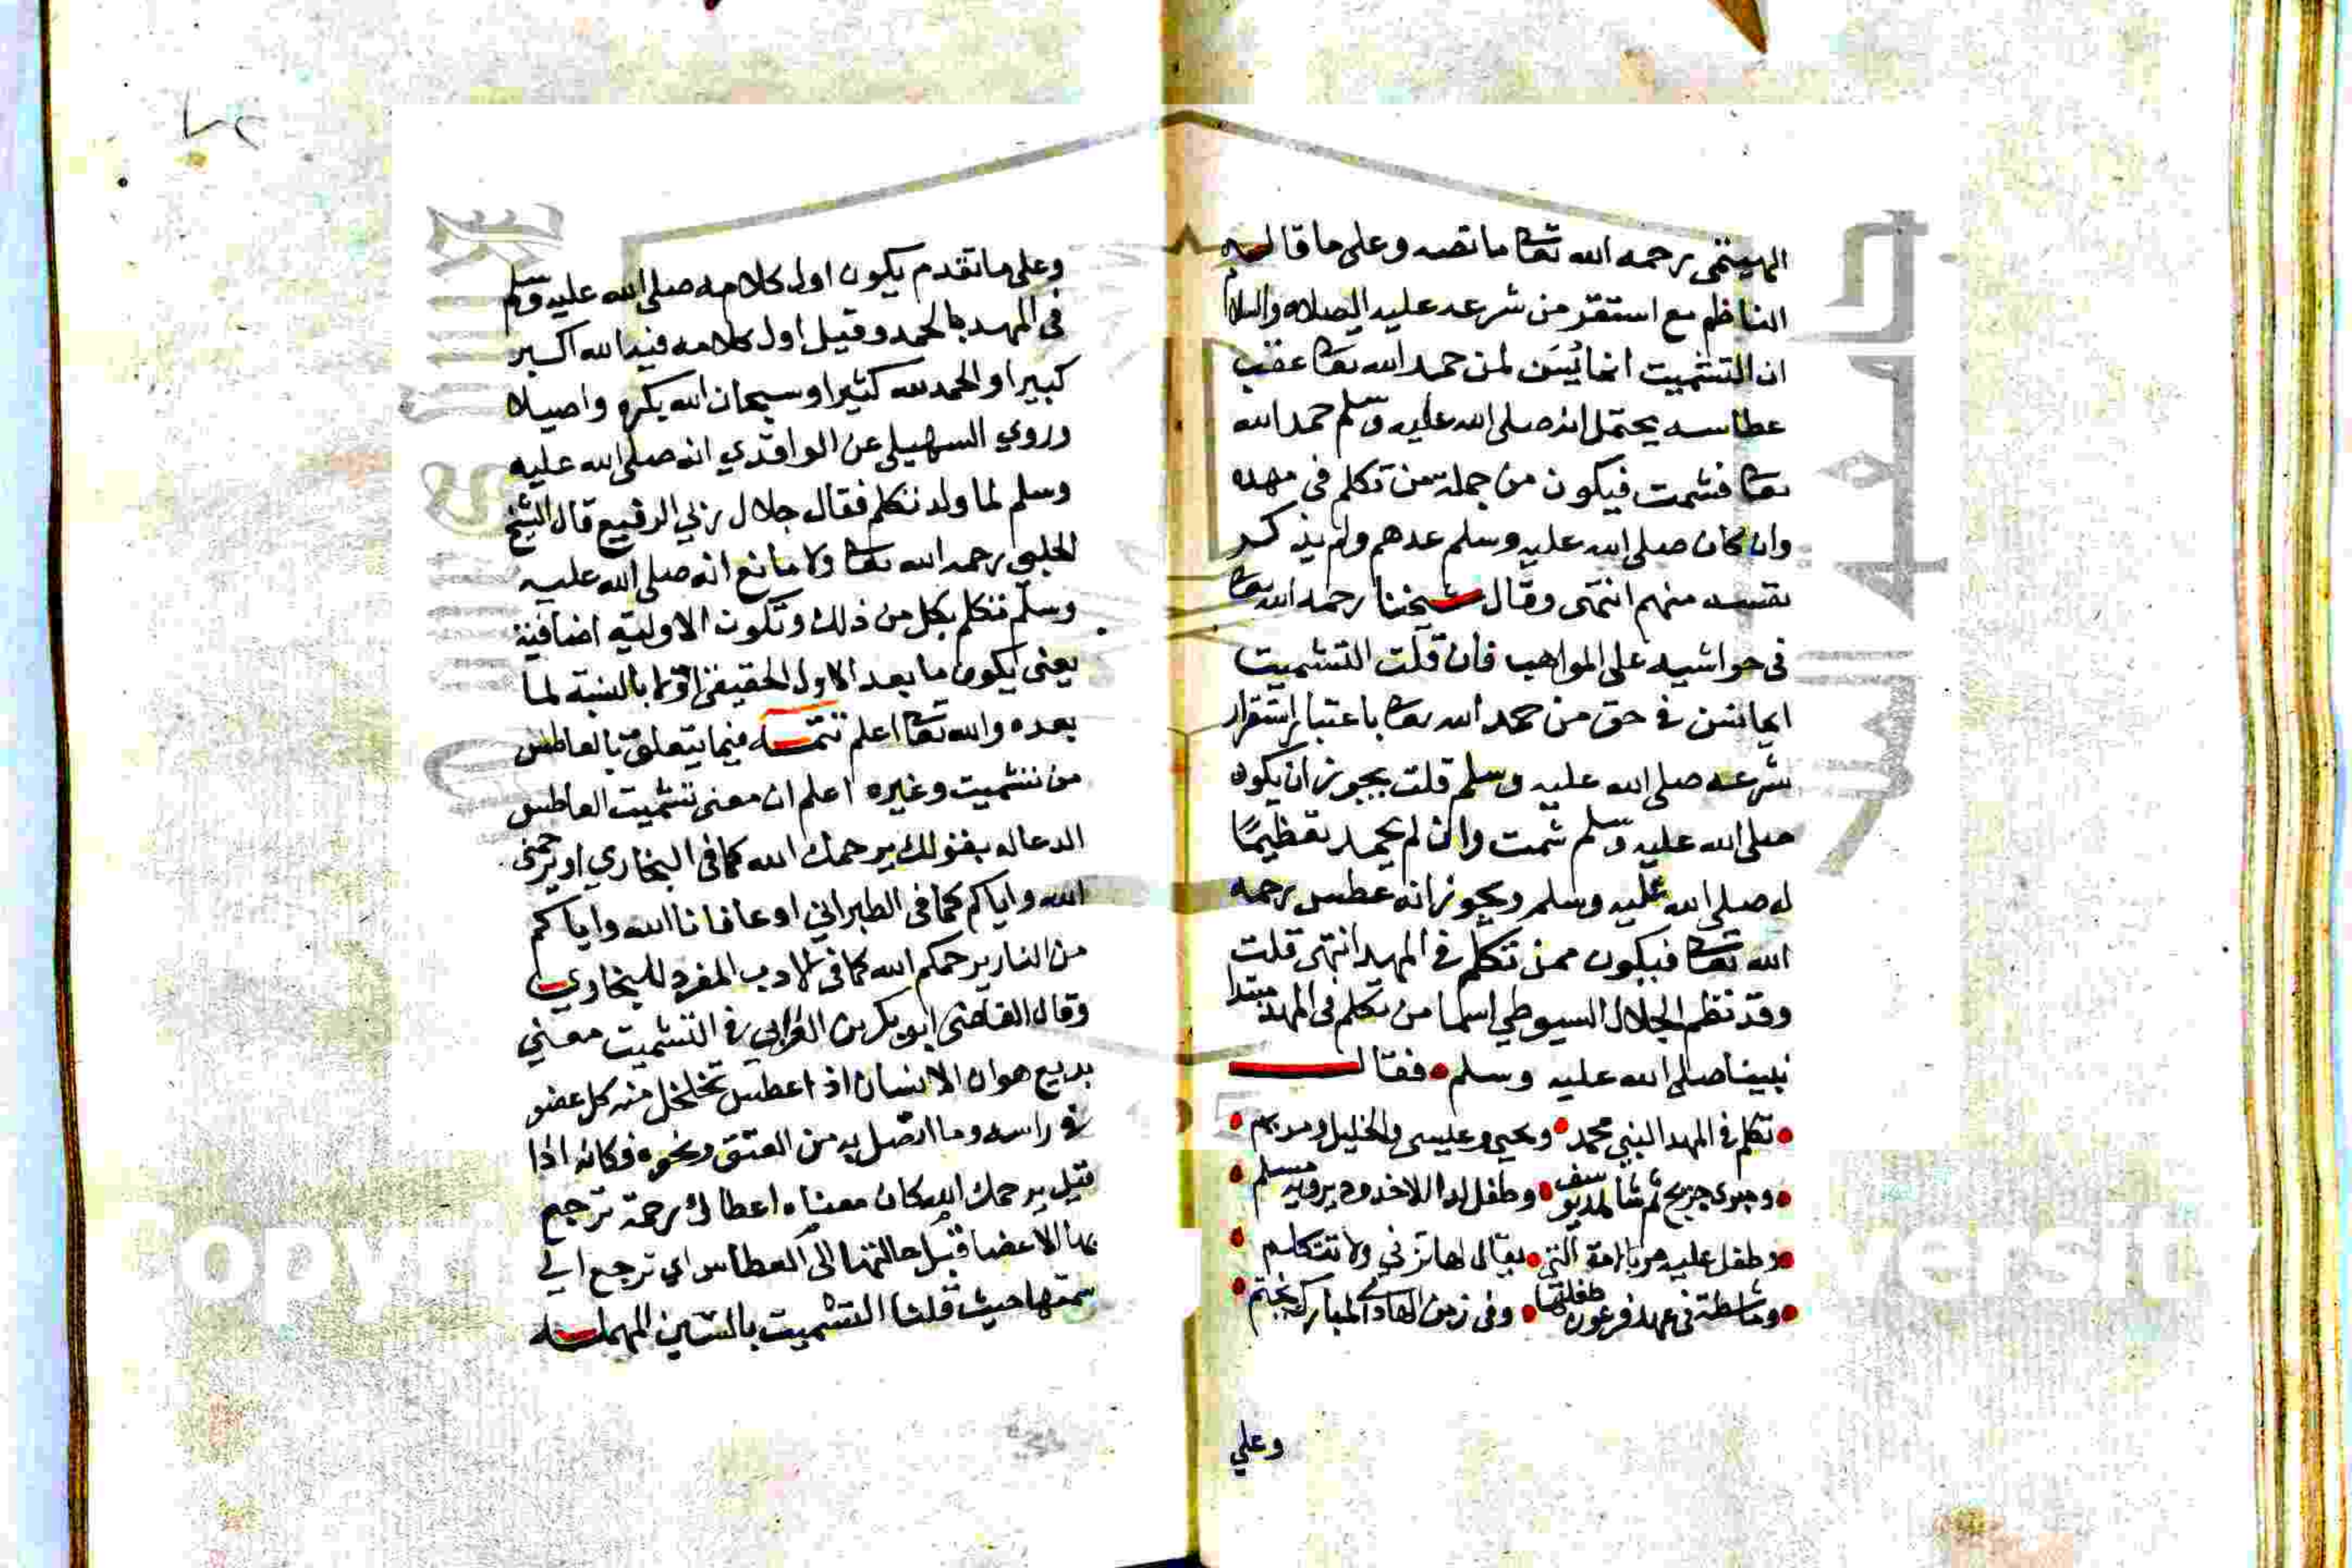 الهيتمى رحمه الله تعا مانصه وعلى ما قاله
الناظم مع استقر من شرعه عليه الصلاه والسلام
ان التشميت انما يُسَن لمن حمد الله تعا عقب
عطاسه يحتمل انه صلى الله عليه وسلم حمد الله
تعا فشمت فيكون من جملة من تكلم في مهده
وان كان صلى الله عليه وسلم عدهم ولم يذكر
نفسه منهم انتهى وقال شيخنا رحمه الله تعا
فى حواشيه على المواهب فان قلت التشميت
انما يسن في حق من حمد الله تعا باعتبار استقرار
شرعه صلى الله عليه وسلم قلت يجوز ان يكون
صلى الله عليه وسلم شمت وان لم يحمد تعظيمًا
له صلى الله عليه وسلم ويجوز انه عطس رحمه
الله تعا فيكون ممن تكلم في المهد انتهى قلت
وقد نظم الجلال السيوطي اسما من تكلم فى المهد مبتدا
نبينا صلى الله عليه وسلم فقال
تكلم في المهد النبي محمد ويحيى وعيسى والخليل ومريم
ومبرى جريج ثم شاهد يوسف وطفل لدا الاخدود يرويه مسلم
وطفل عليه مر بالامة التي يقال لها تزني ولا تتكلم
وماشطة فى عهد فرعون طفلها وفى زمن الهادى المبارك يختم
وعلي
وعلى ما تقدم يكون اول كلامه صلى الله عليه وسلم
فى المهد بالحمد وقيل اول كلامه فيه الله اكبر
كبيرا والحمد لله كثيرا وسبحان الله بكره واصيلا
وروي السهيلى عن الواقدي انه صلى الله عليه
وسلم لما ولد تكلم فقال جلال ربي الرفيع قال الشيخ
الحلبى رحمه الله تعا ولا مانع انه صلى الله عليه
وسلم تكلم بكل من ذلك وتكون الاولية اضافية
يعنى يكون ما بعد الاول الحقيقى اولا بالنسبة لما
بعده والله تعا اعلم تتمه فيما يتعلق بالعاطس
من تشميت وغيره اعلم ان معنى تشميت العاطس
الدعاله بقولك يرحمك الله كما فى البخاري او يرحمنى
الله واياكم كما فى الطبراني او عافانا الله واياكم
من النار يرحمكم الله كما فى الادب المفرد للبخاري
وقال القاضى ابو بكر بن العرابي في التشميت معني
بديع هو ان الانسان اذا عطس تخلخل منه كل عضو
في راسه وما اتصل به من العنق ونحوه فكانه اذا
قيل يرحمك الله كان معناه اعطاك رحمة ترجع
بها الاعضا قبل حالتها الى العطاس اي ترجع الي
سمتها حيث قلنا التشميت بالسين المهمله